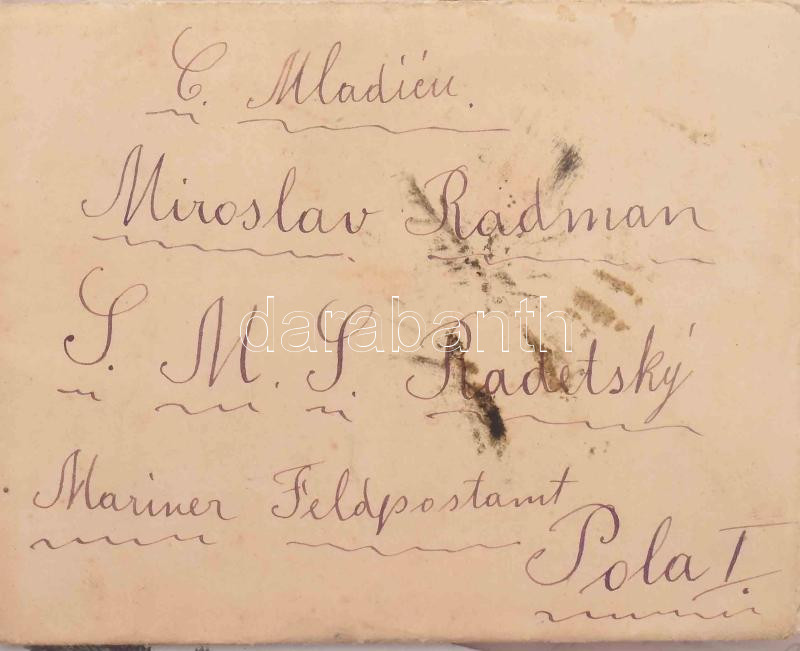 C. Mladiću.
Miroslav Radman
S. M. S. Radetský
darabanth
Mariner Feldpostamt
Pola I.